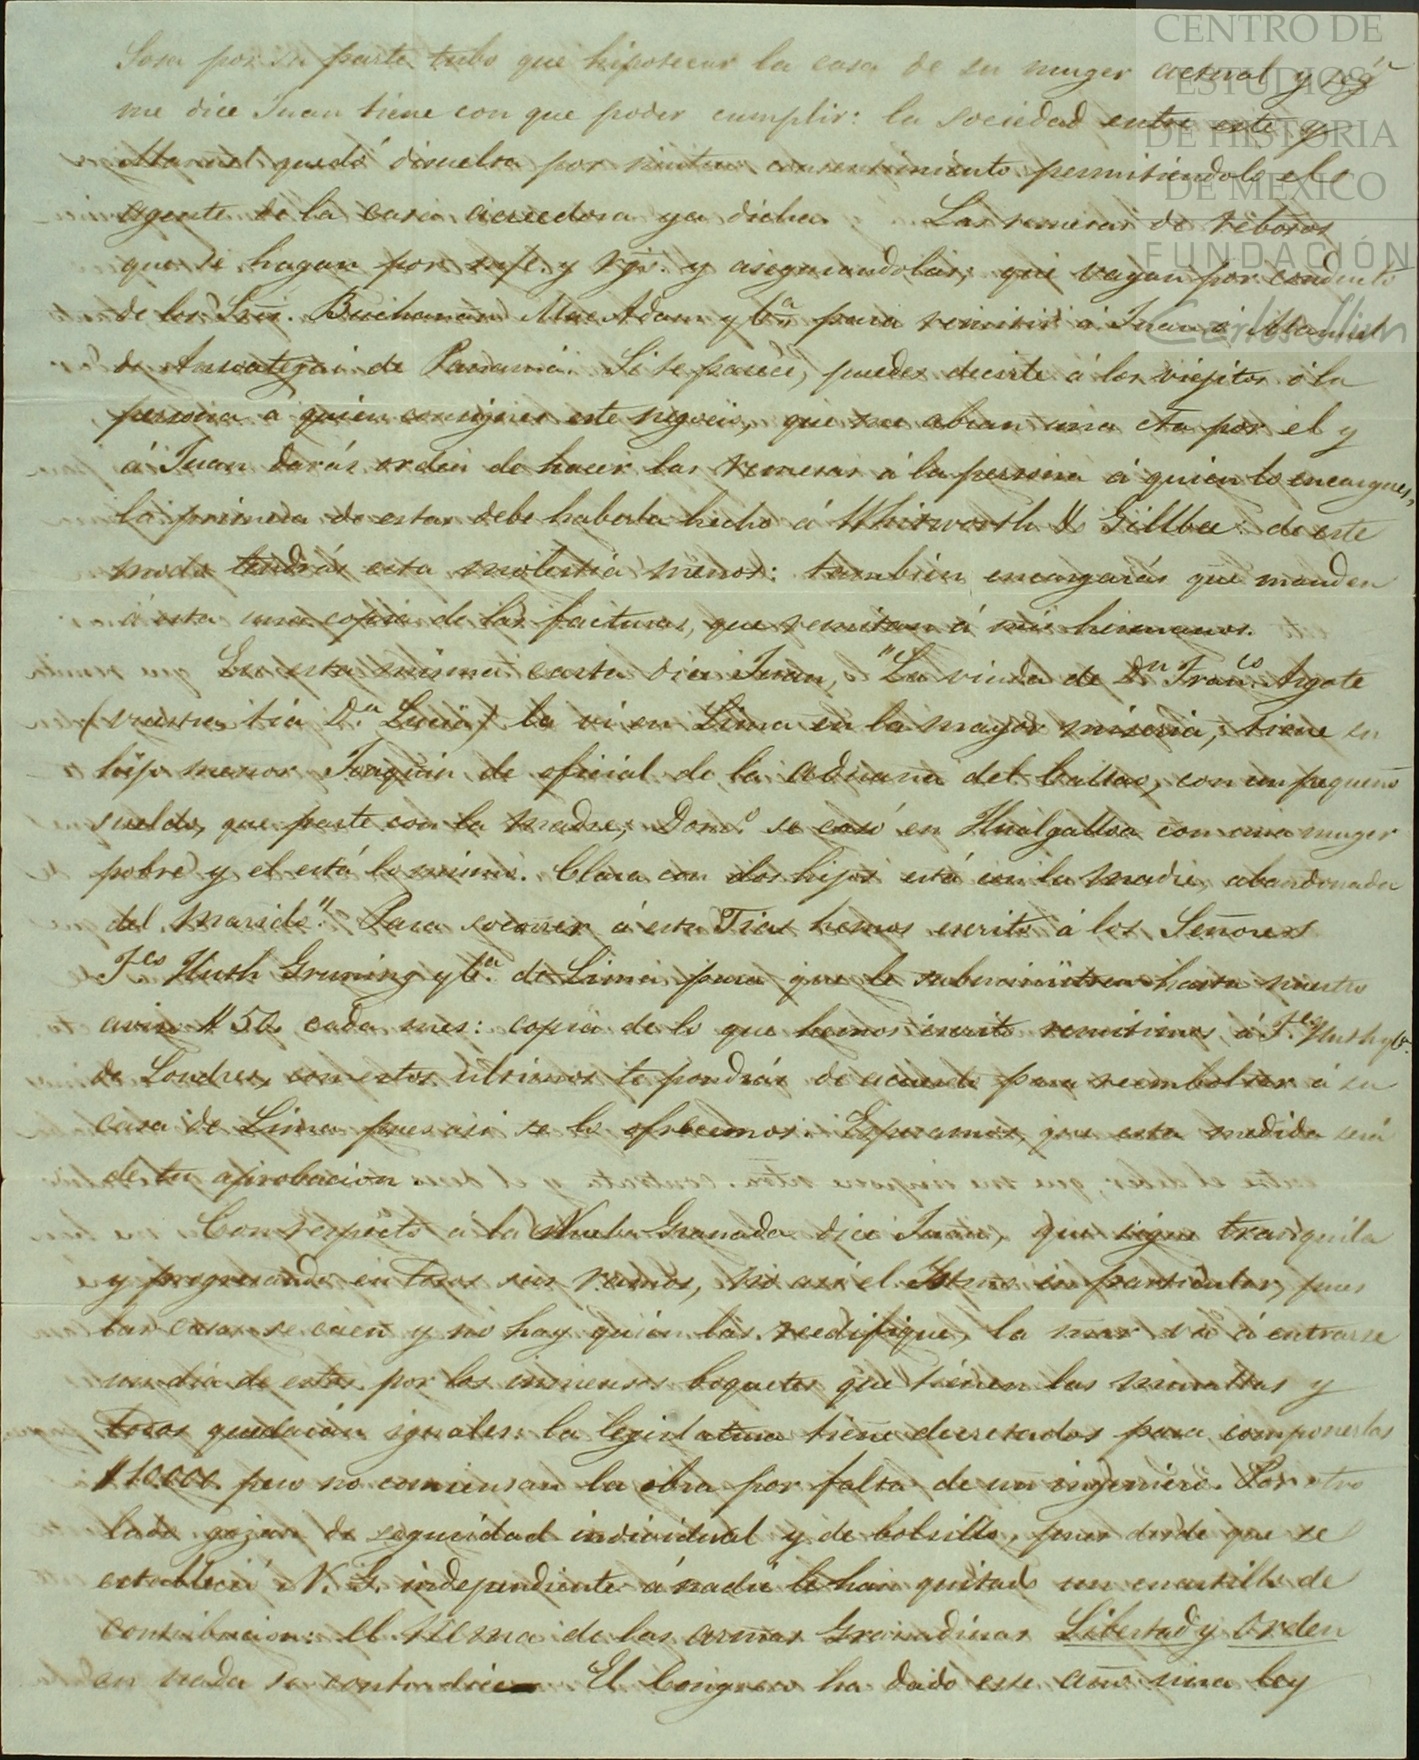 CENTRO DE
ESTUDIOS
DE HISTORIA
DE MÉXICO
FUNDACIÓN
Carlos Slim
Sosa por su parte tubo que hipotecar la casa de su muger actual y segn
me dice Juan tiene con que poder cumplir: la sociedad entre este y
Manuel quedó disuelta por mutuo consentimiento permitiéndolo el
agente de la casa acreedora ya dicha. Las remesas de rebosos
que se hagan por y asegurandolas, que vayan por conducto
de los Sres. Buchanan Mac Adam y Ca para remitir á Juan ó Manuel
de Ansoategui de Panamá. Si te parece, puedes decirte á los viejitos ó la
persona a quien consignes este negocio, que me abran una cta por el y
á Juan darás orden de hacer las remesas á la persona á quien lo encargues,
la primera de estas debe haberla hecho á Whitworth & Gillbee: de este
modo tendrás esta molestia menos: tambien encargarás que manden
á esta una copia de las facturas, que remitan á mis hermanos.
En esta misma carta dice Juan, "La viuda de Dn Franco Argote
(vuestra tia Da Lucia) la vi en Lima en la mayor miseria; tiene su
hijo menor Joaquin de oficial de la aduana del Callao, con un pequeño
sueldo, que parte con la madre; Domo se casó en Hualgalloa con una muger
pobre y el está lo mismo. Clara con dos hijos está con la madre, abandonada
del marido". Para socorrer á esta Tia hemos escrito á los Señores
Fco Huth Gruning y Ca de Lima para que le subministren hasta nuestro
aviso $ 50 cada mes: copia de lo que hemos escrito remitimos á Fco Huth y Ca
de Londres, con estos ultimos te pondrás de acuerdo para reembolsar á su
casa de Lima pues asi se lo ofrecemos. Esperamos, que esta medida será
de tu aprobacion.
Con respecto á la Nueba Granada dice Juan, que sigue tranquila
y progresando en todos sus ramos, no asi el Istmo en particular, pues
las casas se caen y no hay quien las reedifique, la mar va á entrarse
un dia de estos por los inmensos boquetes que tienen las murallas y
todos quedarán iguales: la legislatura tiene decretados para componerlas
$ 10.000 pero no comiensan la obra por falta de un ingeniero. Por otro
lado gozan de seguridad individual y de bolsillo, pues desde que se
estableció N. G. independiente á nadie le han quitado un cuartillo de
contribucion: el tema de las armas Granadinas Libertad y Orden
en nada se contradice — El Congreso ha dado este año una ley